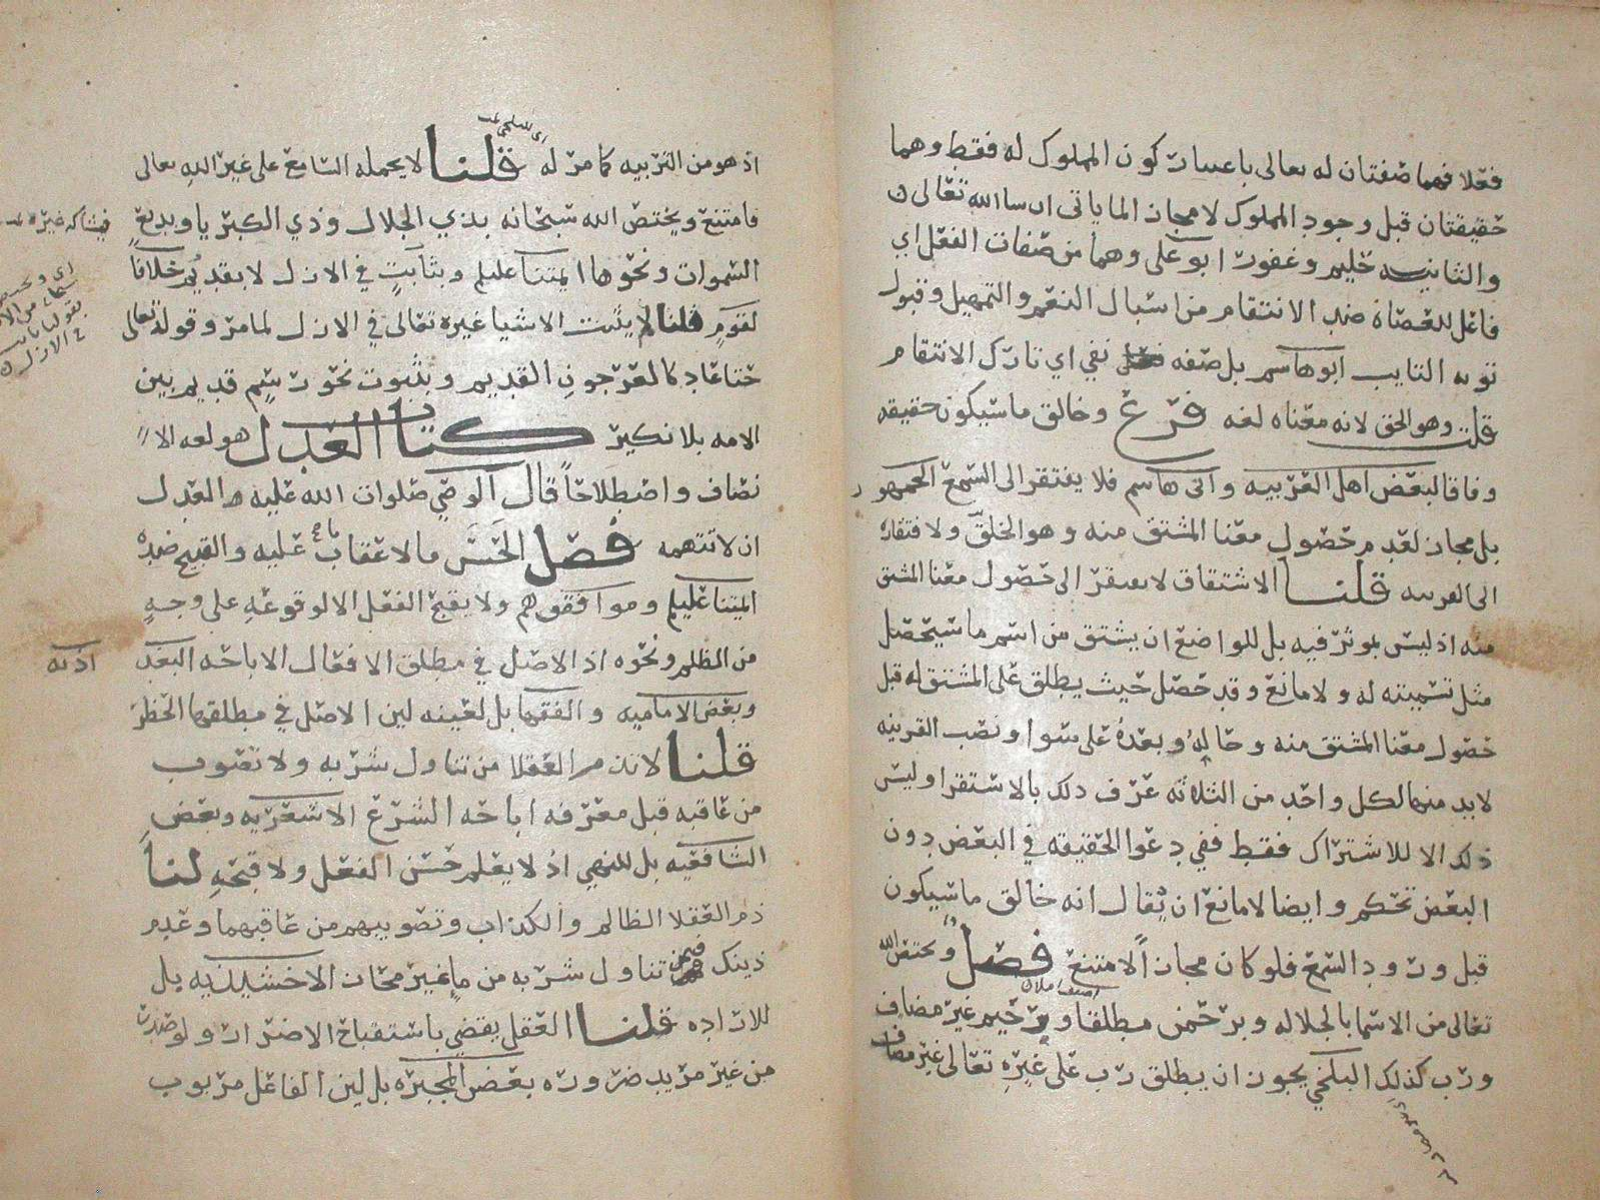 فعلا فهما صفتان له تعالى باعتبار كون المملوك له فقط وهما
حقيقتان قبل وجود المملوك لا مجاز لما ياتى ان سا الله تعالى ن
والثانيه حليم وغفور ابو على وهما من صفات الفعل اي
فاعل للعصاة ضد الانتقام من اسبال النعم والتمهيل وقبول
توبه التايب ابو هاسم بل صفه نفي اي تارك الانتقام
قلت وهو الحق لانه معناه لغه فرع وخالق ما سيكون حقيقه
وفاقا لبعض اهل العربيه وابى هاسم فلا يفتقر الى السمع الجمهور
بل مجاز لعدم حصول معنا المشتق منه وهو الخلق ولافتقاره
الى القرينه قلنا الاشتقاق لا يفتقر الى حصول معنا المشتق
منه اذ ليس بموثر فيه بل للواضع ان يشتق من اسم ما سيحصل
مثل تسميته له ولا مانع وقد حصل حيث يطلق على المشتق له قبل
حصول معنا المشتق منه وحاله وبعده على سوا ونصب القرينه
لا بد منها لكل واحد من الثلاثه عرف ذلك بالاستقرا وليس
ذلك الا للاشتراك فقط ففي دعوا الحقيقه في البعض دون
البعض تحكم وايضا لا مانع ان يقال انه خالق ما سيكون
قبل ورود السمع فلو كان مجازا لامتنع فصل ويختص الله
تعالى من الاسما بالجلاله وبرحمن مطلقا ورحيم غير مضاف
ورب كذلك البلخي يجوز ان يطلق رب على غيره تعالى غير مضاف
اذ هو من التربيه كما مر له قلنا لا يحمله السامع على غير الله تعالى
فامتنع ويختص الله سبحانه بذي الجلال وذي الكبريا وبديع
السموات ونحوها ايمتنا عليلم وبثابت في الازل لا بقديم خلافا
لقوم قلنا لم يثبت الاشيا غيره تعالى في الازل لما مر وقوله تعالى
حتا عاد كالعرجون القديم وبثبوت نحو رسم قديم بين
الامه بلا نكير كتاب العدل هو لغه الا
نصاف واصطلاحا قال الوصي صلوات الله عليه والعدل
ان لا تتهمه فصل الحسن ما لا عقاب عليه والقبيح ضده
ايمتنا عليلم وموافقوهم ولا يقبح الفعل الا لوقوعه على وجه
من الظلم ونحوه اذ الاصل في مطلق الافعال الاباحه البغد
اذيه
وبعض الاماميه والفقها بل لعينه لين الاصل في مطلقها الحظر
قلنا لا تذم العقلا من تناول شربه ولا تصوب
من عاقبه قبل معرفه اباحه الشرع الاشعريه وبعض
الشافعيه بل للنهي اذ لا يعلم حسن الفعل ولا قبحه لنا
ذم العقلا الظالم والكذاب وتصويبهم من عاقبهما وعدم
ذينك فيمن تناول شربه من ما غير محتاز الاخشيديه بل
للاراده قلنا العقل يقضي باستقباح الاضرار ولو صدرت
من غير مريد ضروره بعض المجبره بل لين الفاعل مربوب